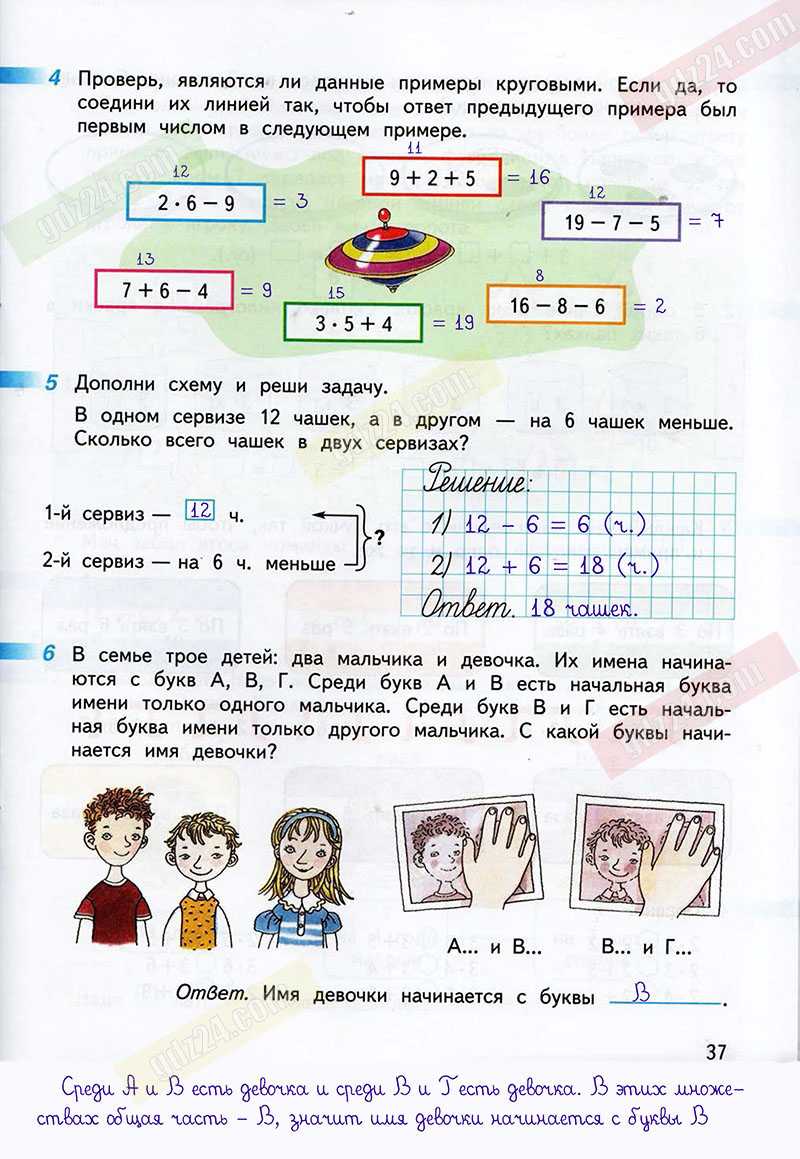 4 Проверь, являются ли данные примеры круговыми. Если да, то
соедини их линией так, чтобы ответ предыдущего примера был
первым числом в следующем примере.
11
9 + 2 + 5 = 16
12
2 · 6 − 9 = 3
12
19 − 7 − 5 = 7
13
7 + 6 − 4 = 9
15
3 · 5 + 4 = 19
8
16 − 8 − 6 = 2
5 Дополни схему и реши задачу.
В одном сервизе 12 чашек, а в другом — на 6 чашек меньше.
Сколько всего чашек в двух сервизах?
1-й сервиз — 12 ч.
2-й сервиз — на 6 ч. меньше
?
Решение:
1) 12 − 6 = 6 (ч.)
2) 12 + 6 = 18 (ч.)
Ответ. 18 чашек.
6 В семье трое детей: два мальчика и девочка. Их имена начина-
ются с букв А, В, Г. Среди букв А и В есть начальная буква
имени только одного мальчика. Среди букв В и Г есть началь-
ная буква имени только другого мальчика. С какой буквы начи-
нается имя девочки?
А... и В...
В... и Г...
Ответ. Имя девочки начинается с буквы В.
37
Среди А и В есть девочка и среди В и Г есть девочка. В этих множе-
ствах общая часть - В, значит имя девочки начинается с буквы В
gdz24.com
gdz24.com
gdz24.com
gdz24.com
gdz24.com